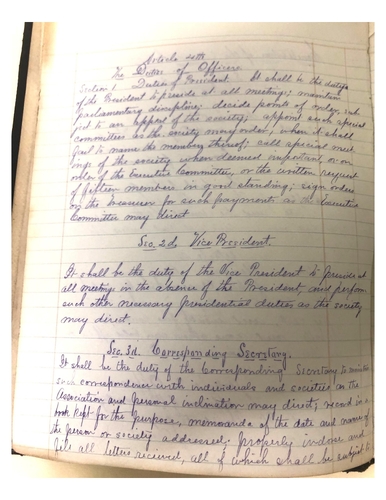 Article 4th
The Duties of Officers
Section 1 Duties of President. It shall be the duty
of the President to preside at all meetings; maintain
parliamentary discipline; decide points of order, sub
ject to an appeal of the society; appoint such special
committees as the society may order, when it shall
fail to name the members thereof; call special meet
ings of the society when deemed important or on
order of the Executive Committee, or the written request
of fifteen members in good standing; sign orders
on the treasurer for such payments as the Executive
Committee may direct
Sec. 2d. Vice President.
It shall be the duty of the Vice President to preside at
all meetings in the absence of the President and perform
such other necessary presidential duties as the society
may direct.
Sec. 3d. Corresponding Secretary.
It shall be the duty of the Corresponding Secretary to
such correspondence with individuals and societies as the
Association and personal inclination may direct; record in a
book kept for the purpose, memoranda of the date and name of
the person or society addressed; properly indorse and
file all letters received, all of which shall be subject to